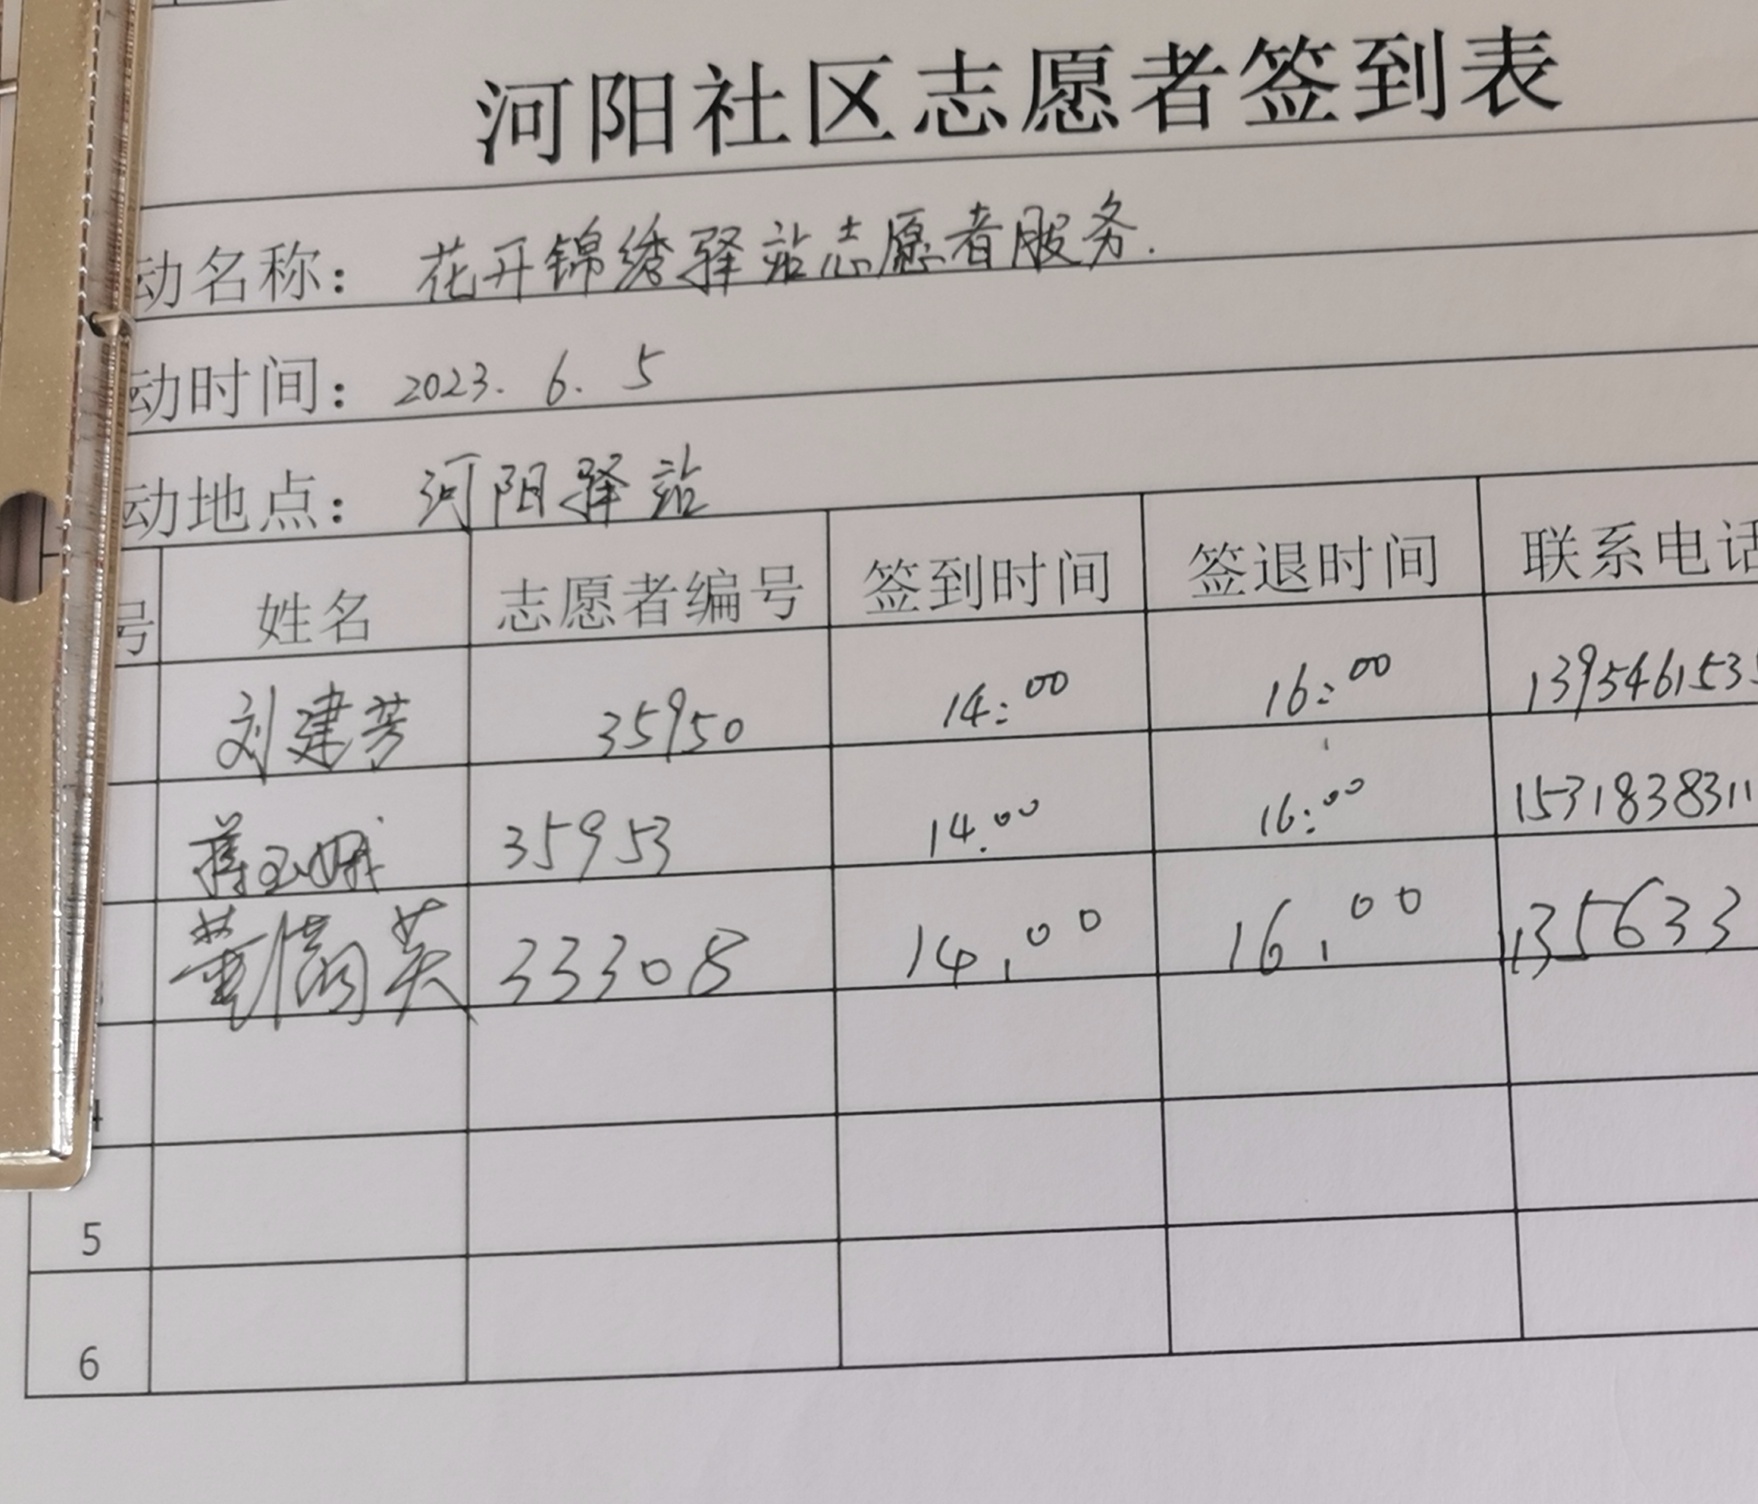 河阳社区志愿者签到表
动名称： 花开锦绣驿站志愿者服务.
动时间： 2023. 6. 5
动地点： 河阳驿站
号 姓名 志愿者编号 签到时间 签退时间 联系电话
刘建芳 35950 14:00 16:00 1395461535
蒋玉娥 35953 14:00 16:00 1531838311
董 英 33308 14:00 16:00 135633
4
5
6